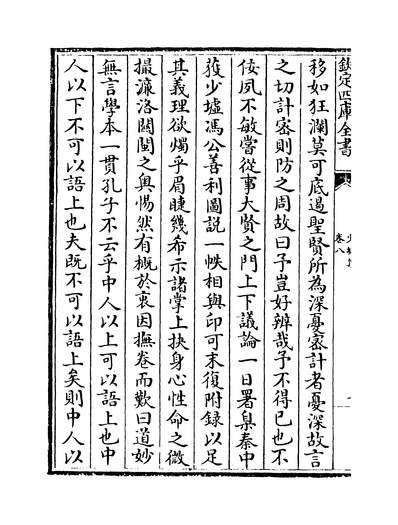 欽定四庫全書
卷八
移如狂瀾莫可底過聖賢所為深憂宻計者憂深故言
之切計宻則防之周故曰予豈好辨哉予不得已也不
佞夙不敏嘗從事大賢之門上下議論一日署臬秦中
獲少墟馮公善利圖說一帙相與印可末復附錄以足
其義理欲燭乎眉睫幾希示諸掌上抉身心性命之微
撮濂洛關閩之奥惕然有概於衷因撫卷而歎曰道妙
無言學本一貫孔子不云乎中人以上可以語上也中
人以下不可以語上也夫既不可以語上矣則中人以